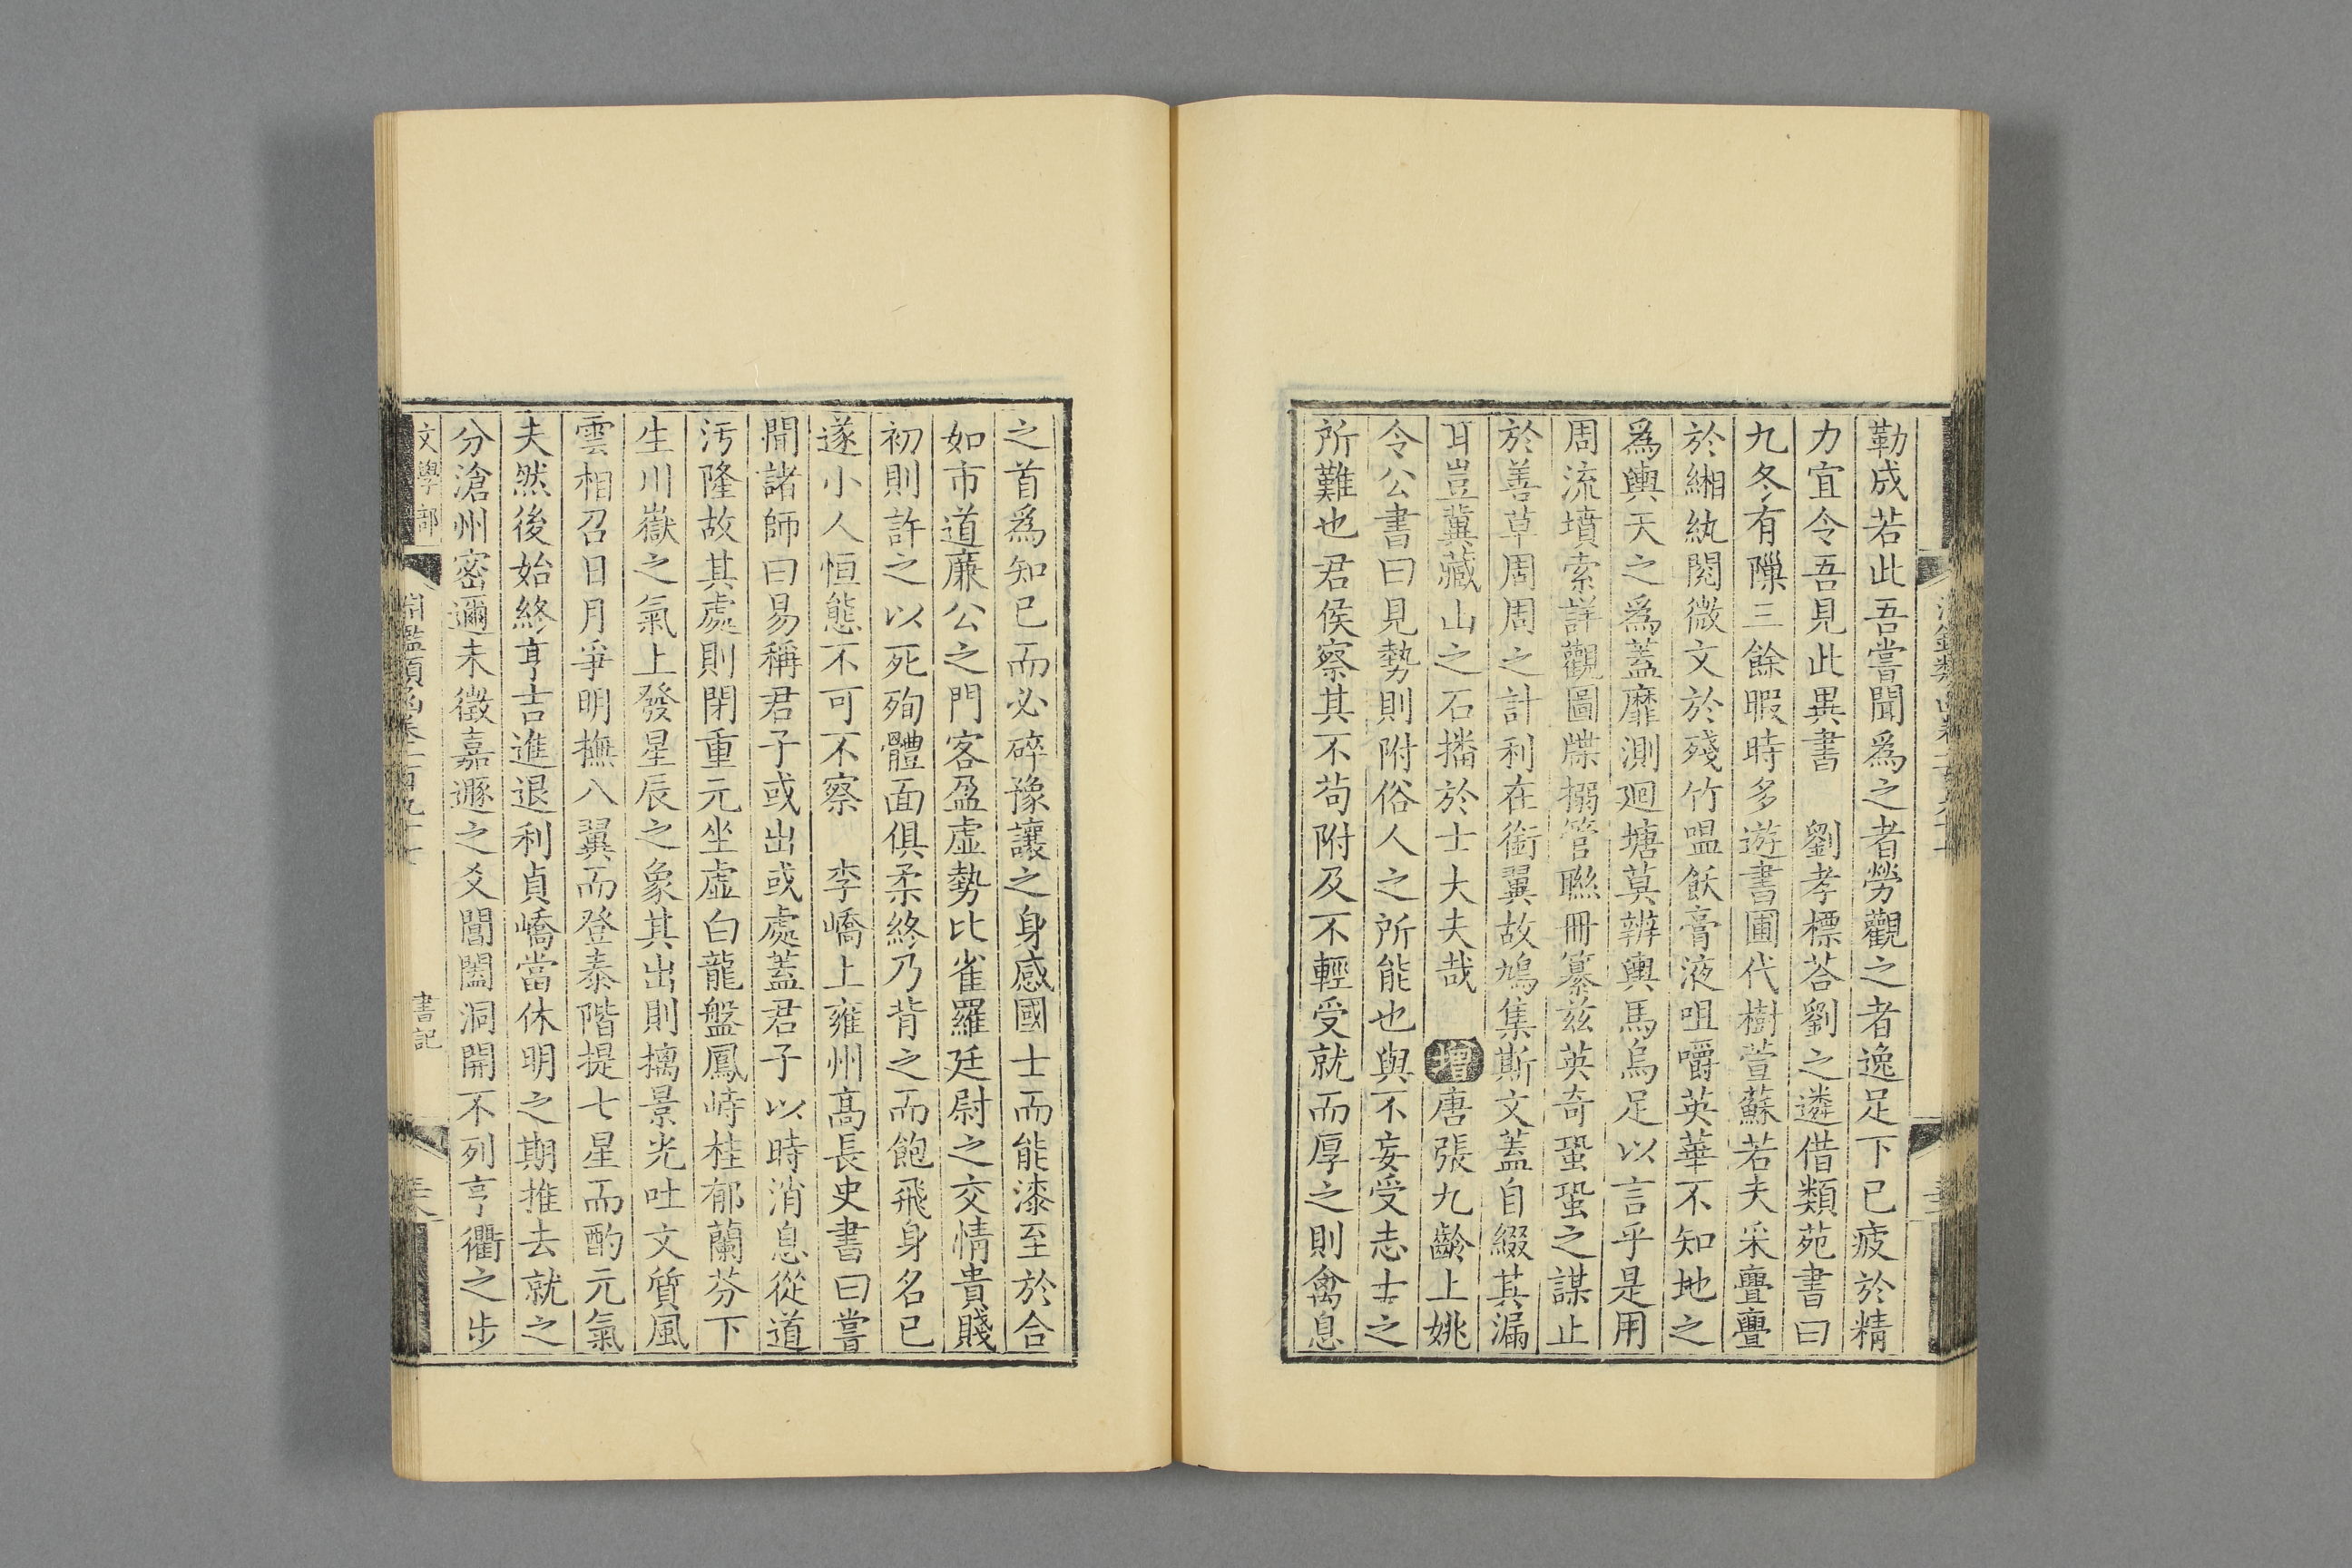 勒成若此吾嘗聞爲之者勞觀之者逸足下已疲於精
力宜令吾見此異書　劉孝標荅劉之遴借類苑書曰
九冬有隟三餘暇時多遊書圃代樹萱蘇若夫采亹亹
於緗紈閱微文於殘竹嗢飫膏液咀嚼英華不知地之
爲輿天之爲蓋靡測迴塘莫辨輿馬烏足以言乎是用
周流墳索詳觀圖牒搦管聮冊纂兹英奇蛩蛩之謀止
於善草周周之計利在銜翼故鳩集斯文蓋自綴其漏
耳豈冀藏山之石播於士大夫哉　增唐張九齡上姚
令公書曰見勢則附俗人之所能也與不妄受志士之
所難也君侯察其不苟附及不輕受就而厚之則禽息
之首爲知已而必碎豫讓之身感國士而能漆至於合
如市道廉公之門客盈虛勢比雀羅廷尉之交情貴賤
初則許之以死殉體面俱柔終乃背之而飽飛身名已
遂小人恒態不可不察　李嶠上雍州髙長史書曰嘗
聞諸師曰易稱君子或出或處蓋君子以時消息從道
汚隆故其處則閉重元坐虛白龍盤鳳峙桂郁蘭芬下
生川嶽之氣上發星辰之象其出則摛景光吐文質風
雲相召日月爭明撫八翼而登泰階提七星而酌元氣
夫然後始終亨吉進退利貞嶠當休明之期推去就之
分滄州密邇未徵嘉遯之爻閶闔洞開不列亨衢之步
文學部
書記